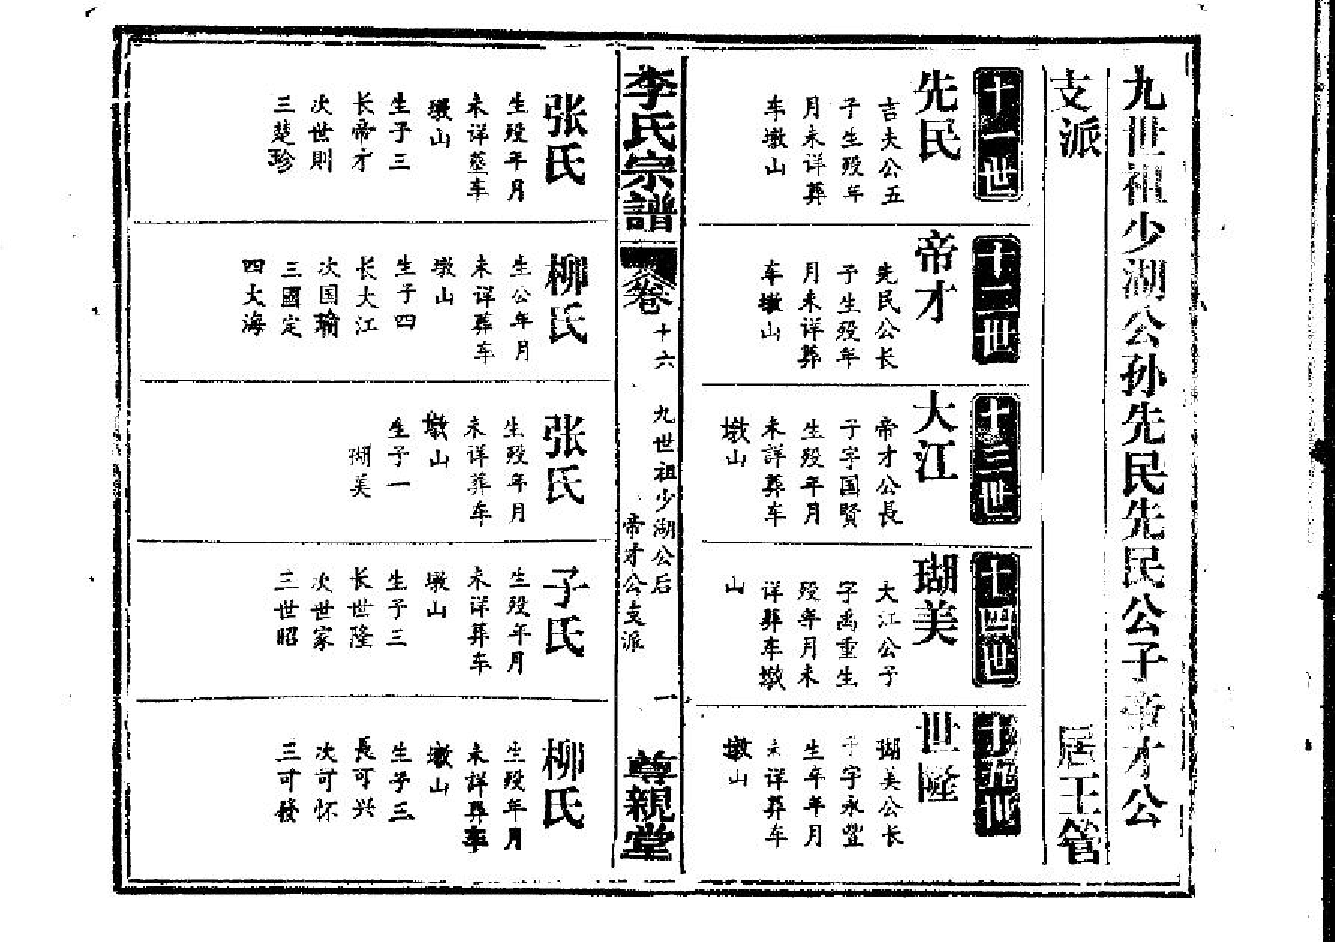 九世祖少湖公孙先民先民公子帝才公
支派
居王管
十一世
先民
吉夫公五
子生殁年
月未详葬
车墩山
十二世
帝才
先民公长
子生殁年
月未详葬
车墩山
十三世
大江
帝才公長
子字国賢
生殁年月
未詳葬车
墩山
十四世
瑚美
大江公子
字禹重生
殁年月未
详葬车墩
山
十五世
世隆
瑚美公长
子字永豐
生年年月
未详葬车
墩山
李氏宗譜
卷
十六
九世祖少湖公后
帝才公支派
一
尊親堂
张氏
生殁年月
未详葬车
墩山
生子三
长帝才
次世則
三楚珍
柳氏
生公年月
未详葬车
墩山
生子四
长大江
次国瑜
三國定
四大海
张氏
生殁年月
未详葬车
墩山
生子一
瑚美
子氏
生殁年月
未详葬车
墩山
生子三
长世隆
次世家
三世昭
柳氏
生殁年月
未詳葬车
墩山
生子三
長可兴
次可怀
三可發